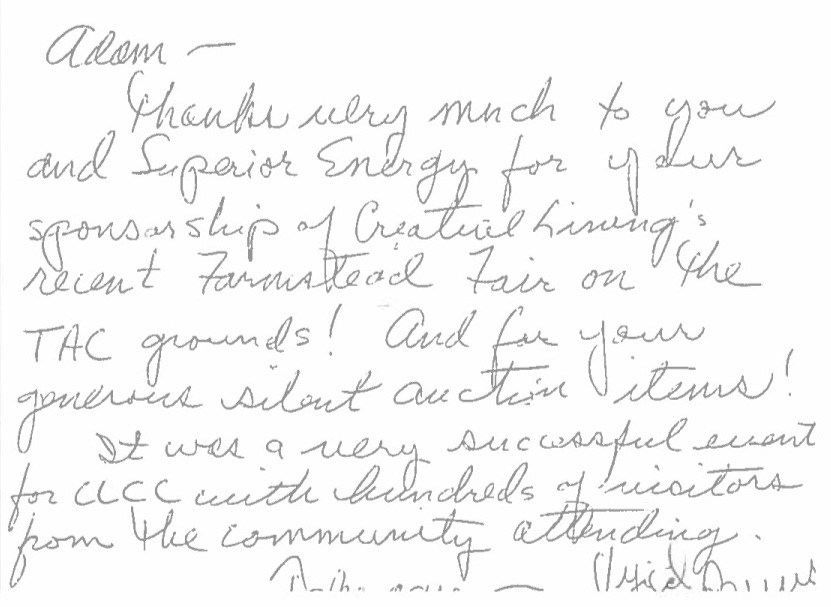 Adam —
Thanks very much to you
and Superior Energy for your
sponsorship of Creative Living's
recent Farmstead Fair on the
TAC grounds! And for your
generous silent auction items!
It was a very successful event
for UCC with hundreds of visitors
from the community attending.
—